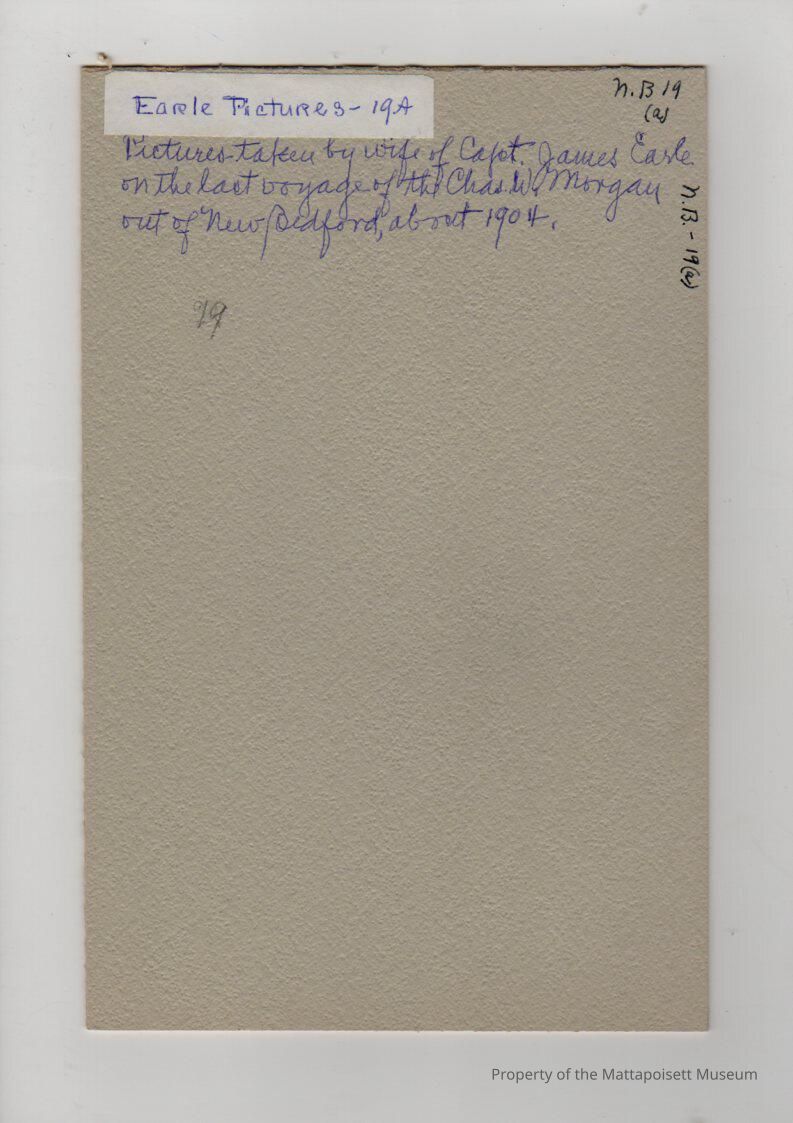 Earle Pictures - 19A
N.B 19
(a)
Pictures taken by wife of Capt. James Earle
on the last voyage of the Chas. W. Morgan
out of New Bedford, about 1904.
N.B. - 19(a)
19
Property of the Mattapoisett Museum